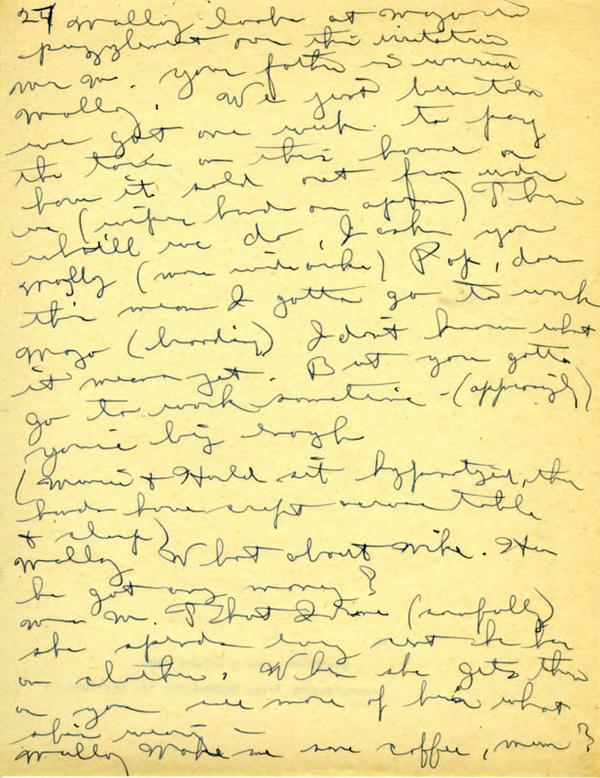 24 Wally looks at Mojo in
puzzlement over this
Mrs M. Your father is worried
Wally. We just been told
we got one week to pay
the taxes on this house or
have it sold out from under
us (wipes hands on apron) Then
what'll we do, I ask you
Wally (more wide awake) Pop, does
this mean I gotta go to work
Mojo (brooding) I don't know what
it means yet. But you gotta
go to work sometime - (approvingly)
you're big enough
(Mamie & Harold sit hypnotized, their
hands have crept across table
& clasp)
Wally What about Mike. Has
he got any money?
Mrs M. That (scornfully)
she spends every cent she has
on clothes. When she gets thru
on you see more of her what
she's wearing -
Wally Make me some coffee, mum?